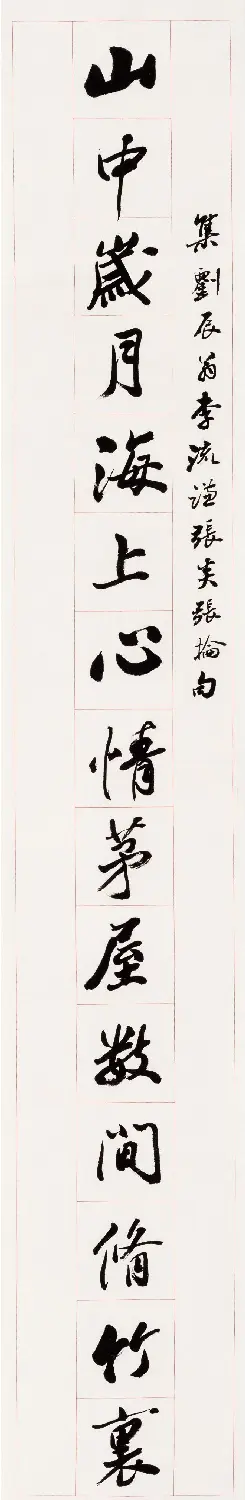 集劉辰翁李流謙張炎張掄句
山中歲月海上心情茅屋數間脩竹裏